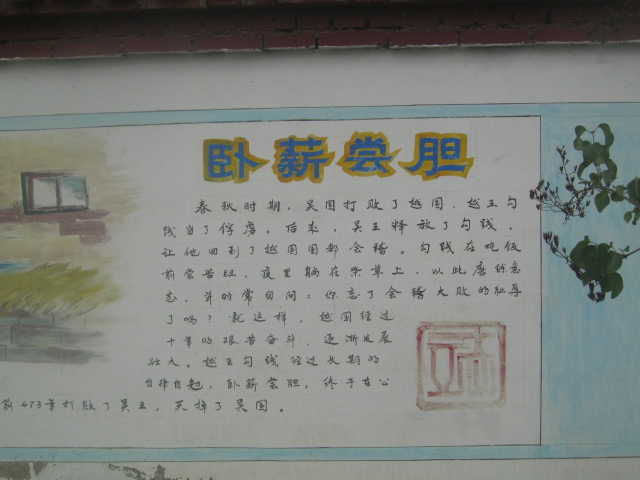 卧薪尝胆
春秋时期，吴国打败了越国，越王勾
践当了俘虏。后来，吴王释放了勾践，
让他回到了越国国都会稽。勾践在吃饭
前尝苦胆，夜里躺在柴草上，以此磨练意
志，并时常自问：你忘了会稽大败的耻辱
了吗？就这样，越国经过
十年的艰苦奋斗，逐渐发展
壮大。越王勾践经过长期的
自律自勉，卧薪尝胆，终于在公
前473年打败了吴王，灭掉了吴国。